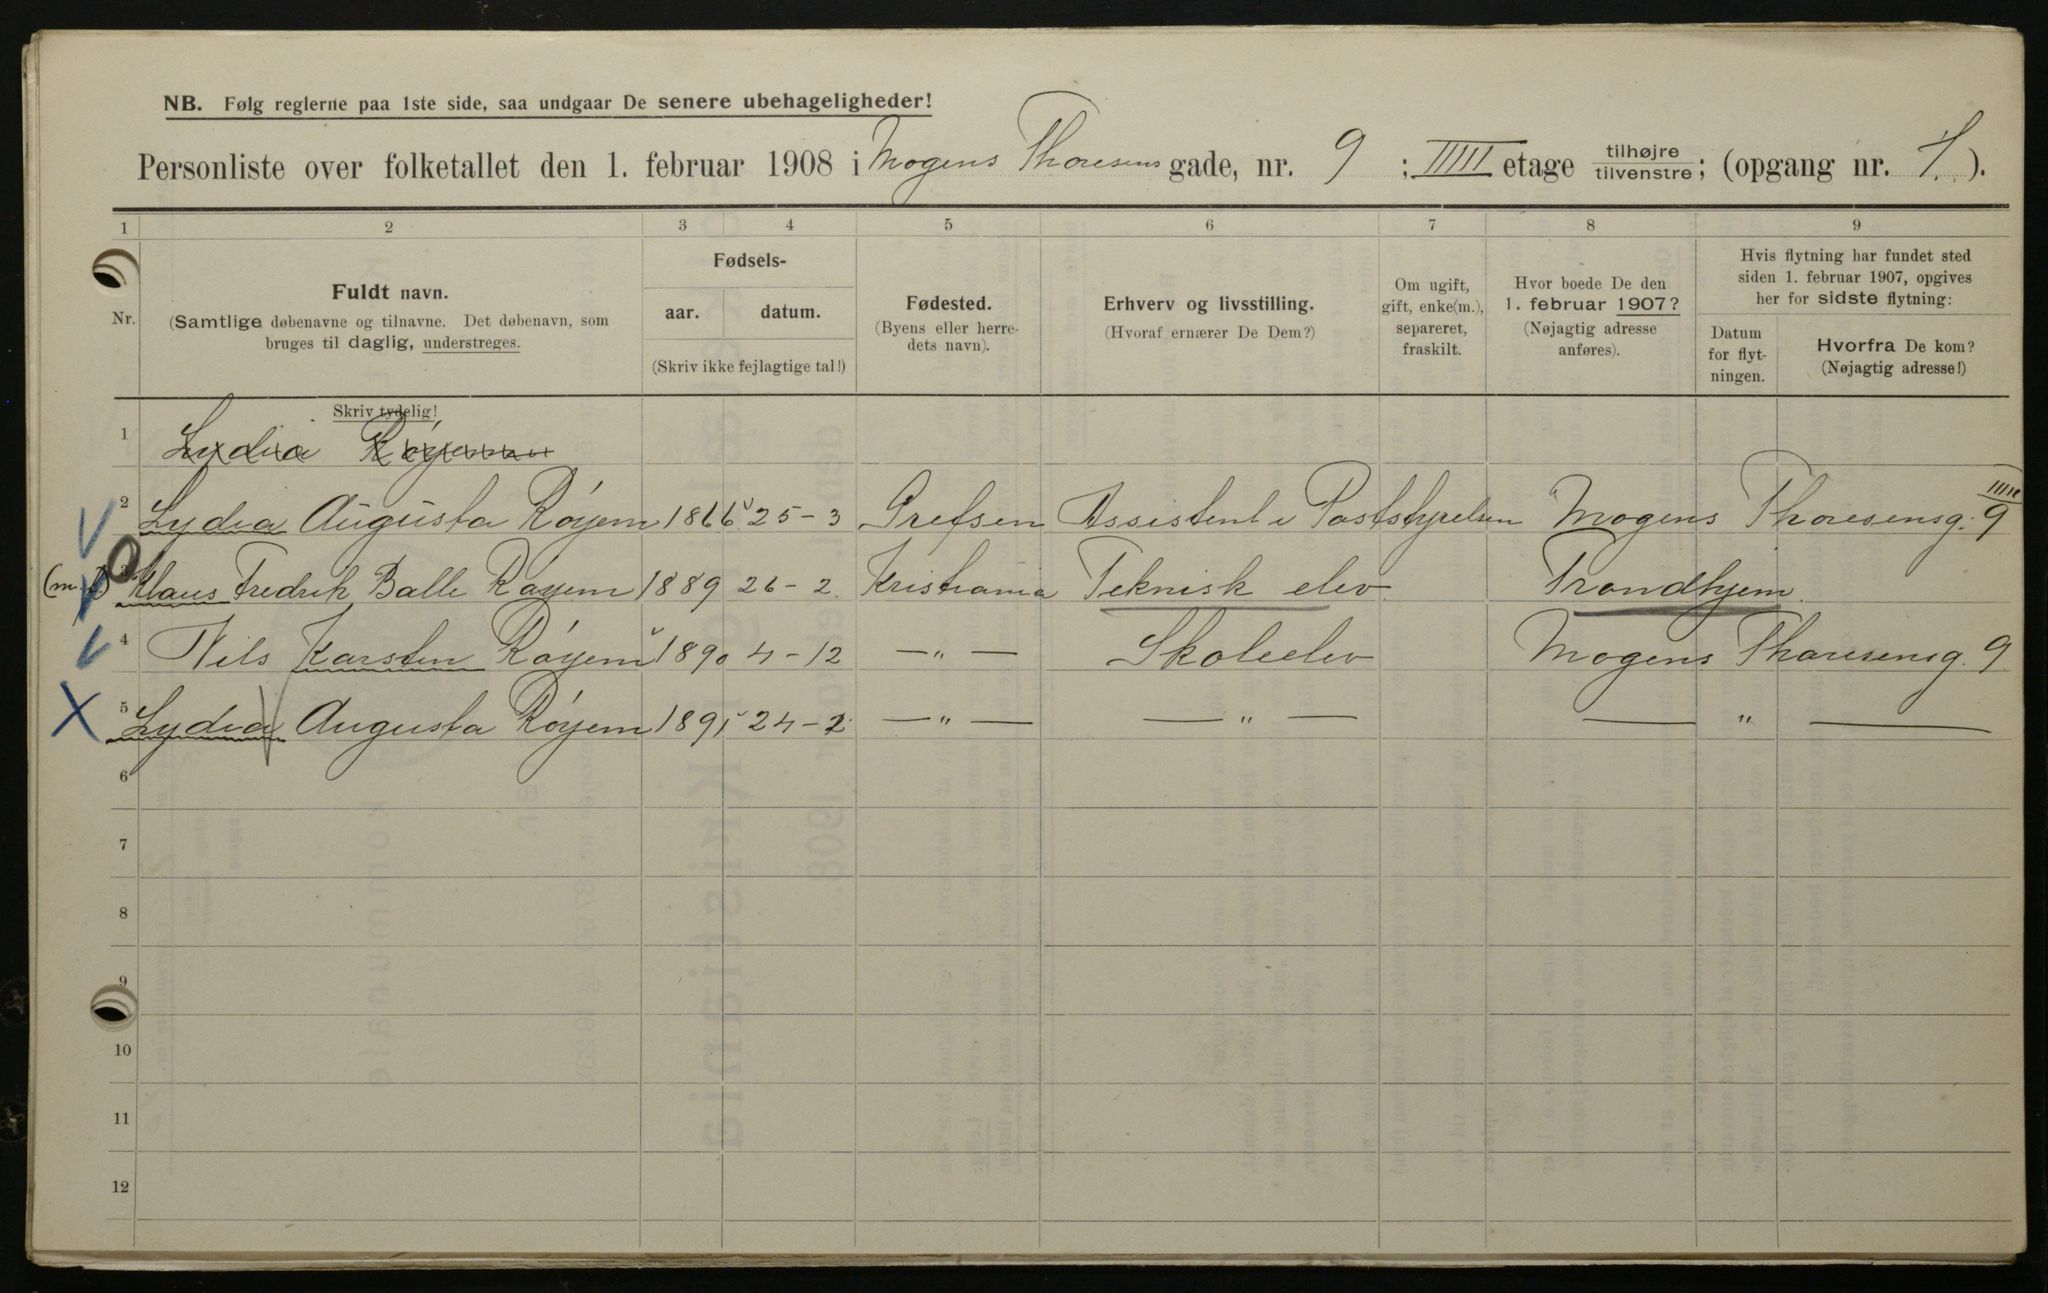 NB. Følg reglerne paa 1ste side, saa undgaar De senere ubehageligheder!
Personliste over folketallet den 1. februar 1908 i Mogens Thoresens gade, nr. 9 ; IIIII etage tilhøjre tilvenstre ; (opgang nr. 1. ).
1 2 3 4 5 6 7 8 9
Nr.
Fuldt navn.
(Samtlige døbenavne og tilnavne. Det døbenavn, som
bruges til daglig, understreges.
Skriv tydelig!
Fødsels-
aar. datum.
(Skriv ikke fejlagtige tal!)
Fødested.
(Byens eller herre-
dets navn).
Erhverv og livsstilling.
(Hvoraf ernærer De Dem?)
Om ugift,
gift, enke(m.),
separeret,
fraskilt.
Hvor boede De den
1. februar 1907?
(Nøjagtig adresse
anføres).
Hvis flytning har fundet sted
siden 1. februar 1907, opgives
her for sidste flytning:
Datum
for flyt-
ningen.
Hvorfra De kom?
(Nøjagtig adresse!)
1 Lydia Røyem
2 Lydia Augusta Røyem 1866 25-3 Grefsen Assistent i Poststyrelsen Mogens Thoresensg. 9 IIIII
(m. t) 3 Klaus Fredrik Balle Røyem 1889 26-2. Kristiania Teknisk elev. Trondhjem.
4 Nils Karsten Røyem 1890 4-12 —„— Skoleelev Mogens Thoresensg. 9
5 Lydia Augusta Røyem 1891 24-2. —„— —„— —„—
6
7
8
9
10
11
12